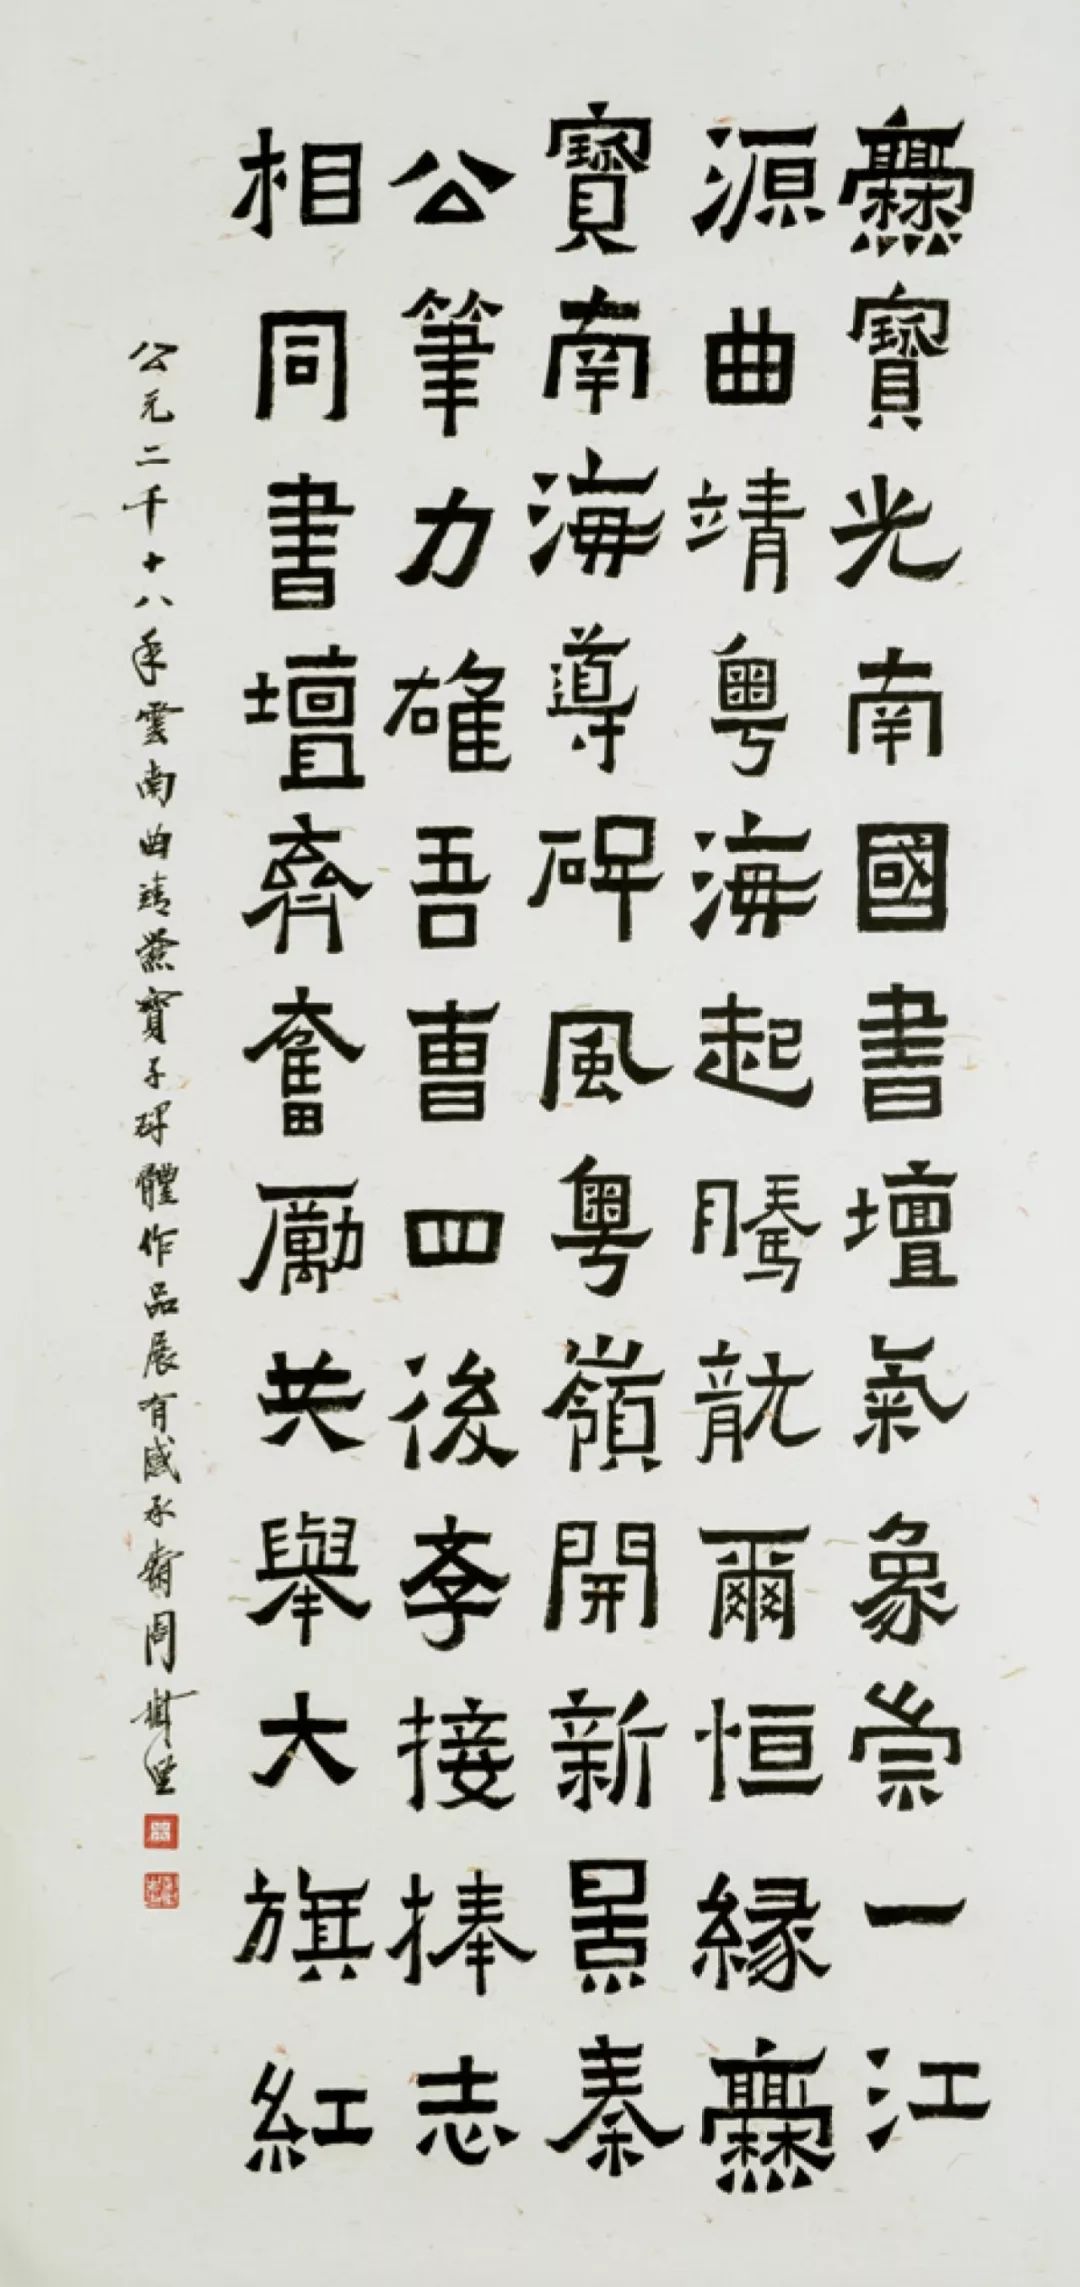 爨寶光南國書壇氣象崇一江
源曲靖粵海起騰龍爾恒緣爨
寶南海導碑風粵嶺開新景秦
公筆力雄吾曹四後季接捧志
相同書壇齊奮勵共舉大旗紅
公元二千十八年雲南曲靖爨寶子碑體作品展有感永齋周樹堅